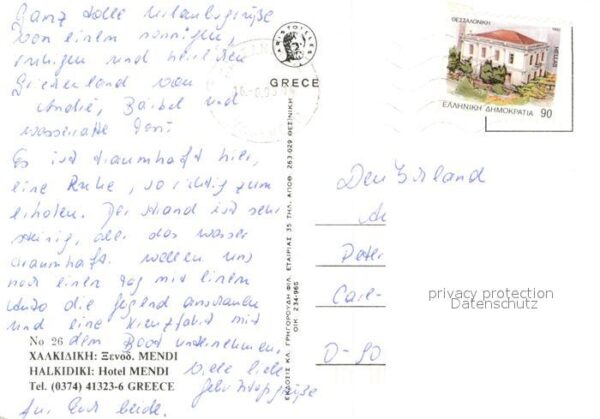 Ganz tolle Urlaubsgrüße
von einem sonnigen,
ruhigen und heißen
Griechenland von
André, Bärbel und
wasserratte Toni.
Es ist traumhaft hier,
eine Ruhe, so richtig zum
erholen. Der Strand ist sehr
steinig, aber das wasser
traumhaft. wollen uns
noch einen Tag mit einem
Auto die gegend anschauen
und eine Kreuzfahrt mit
dem Boot unternehmen.
Viele liebe
für Euch beide.
No 26
ΧΑΛΚΙΔΙΚΗ: Ξενοδ. MENDI
HALKIDIKI: Hotel MENDI
Tel. (0374) 41323-6 GREECE
ARISTOTELES
GREECE
ΕΚΔΟΣΙΣ ΚΛ. ΓΡΗΓΟΡΟΥΔΗ ΦΙΛ. ΕΤΑΙΡΙΑΣ 35 ΤΗΛ. ΑΠΟΘ. 263-029 ΘΕΣ/ΝΙΚΗ
ΟΙΚ. 234-965
ΘΕΣΣΑΛΟΝΙΚΗ
HELLAS
ΕΛΛΗΝΙΚΗ ΔΗΜΟΚΡΑΤΙΑ 90
Deutschland
Peter
Carl-
D-90
privacy protection
Datenschutz